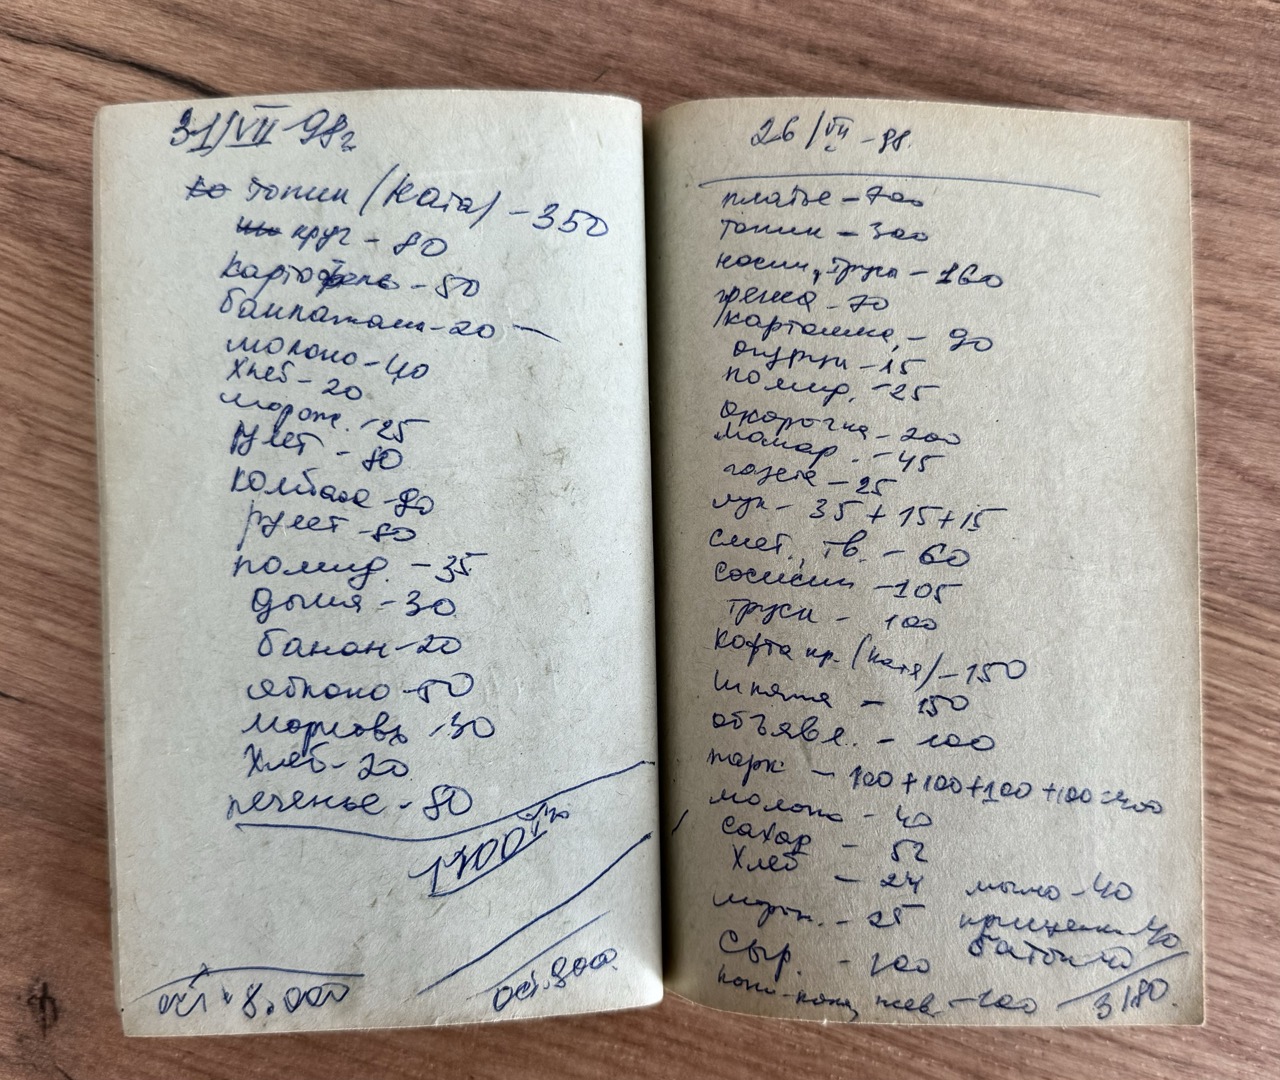 31/VII 98г
топик (Ката) - 350
круг - 80
картофель - 50
баклажан - 20 -
молоко - 40
хлеб - 20
морож. - 25
рулет - 80
колбаса - 90
рулет - 80
помид. - 35
дыня - 30
банан - 20
яблоко - 50
морковь - 30
хлеб - 20
печенье - 80
1700
ост. 8.000
ост. 800.
26/VII -98.
платье - 700
топик - 300
носки, трусы - 160
70
картошка, - 90
огурцы - 15
помид. - 25
окорочка - 200
45
газета - 25
лук - 35 + 15 + 15
смет., тв. - 60
сосиски - 105
трусы - 100
кофта кр. (Катя) - 150
шляпа - 150
объявл. - 100
парк - 100 + 100 + 100 + 100 = 400
молоко - 40
сахар - 52
хлеб - 24 мыло - 40
морож. - 25 прищепки - 40
сыр. - 100 батон 40
кока-кола, жев - 100 3180.